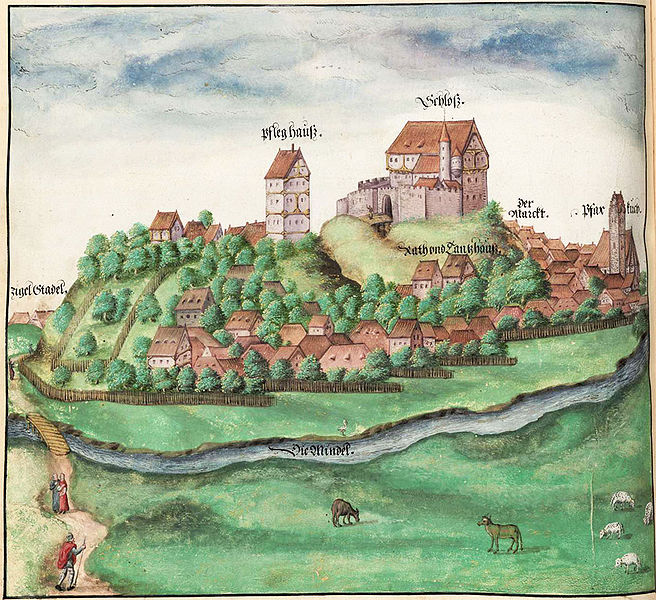 Schloß.
Pfleghauß.
Der
Marckt.
Pfar
Rath ond Tantzhauß.
Zigel Stadel.
Die Mindel.